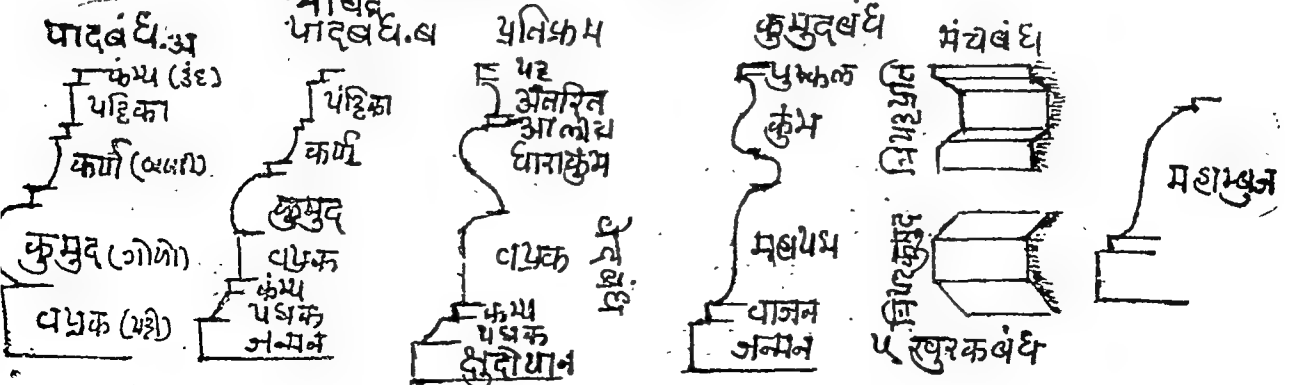 पादबंध.अ
कंम्प (उंछ)
पट्टिका
कर्ण
कुमुद (गोळो)
वप्रक (पट्टी)
पादबंध.ब
पट्टिका
कर्ण
कुमुद
वप्रक
कंम्प
पद्मक
जन्मन
प्रतिक्रम
पट्ट
अंतरित
आलींग
धाराकुंभ
वप्रक
कम्प
पद्मक
क्षुद्रोपान
कुमुदबंध
पुष्कल
कुंभ
महापद्म
वाजन
जन्मन
मंचबंध
त्रिपट्ट
त्रिपट्टकुमुद
५ खुरकबंध
महाम्बुज